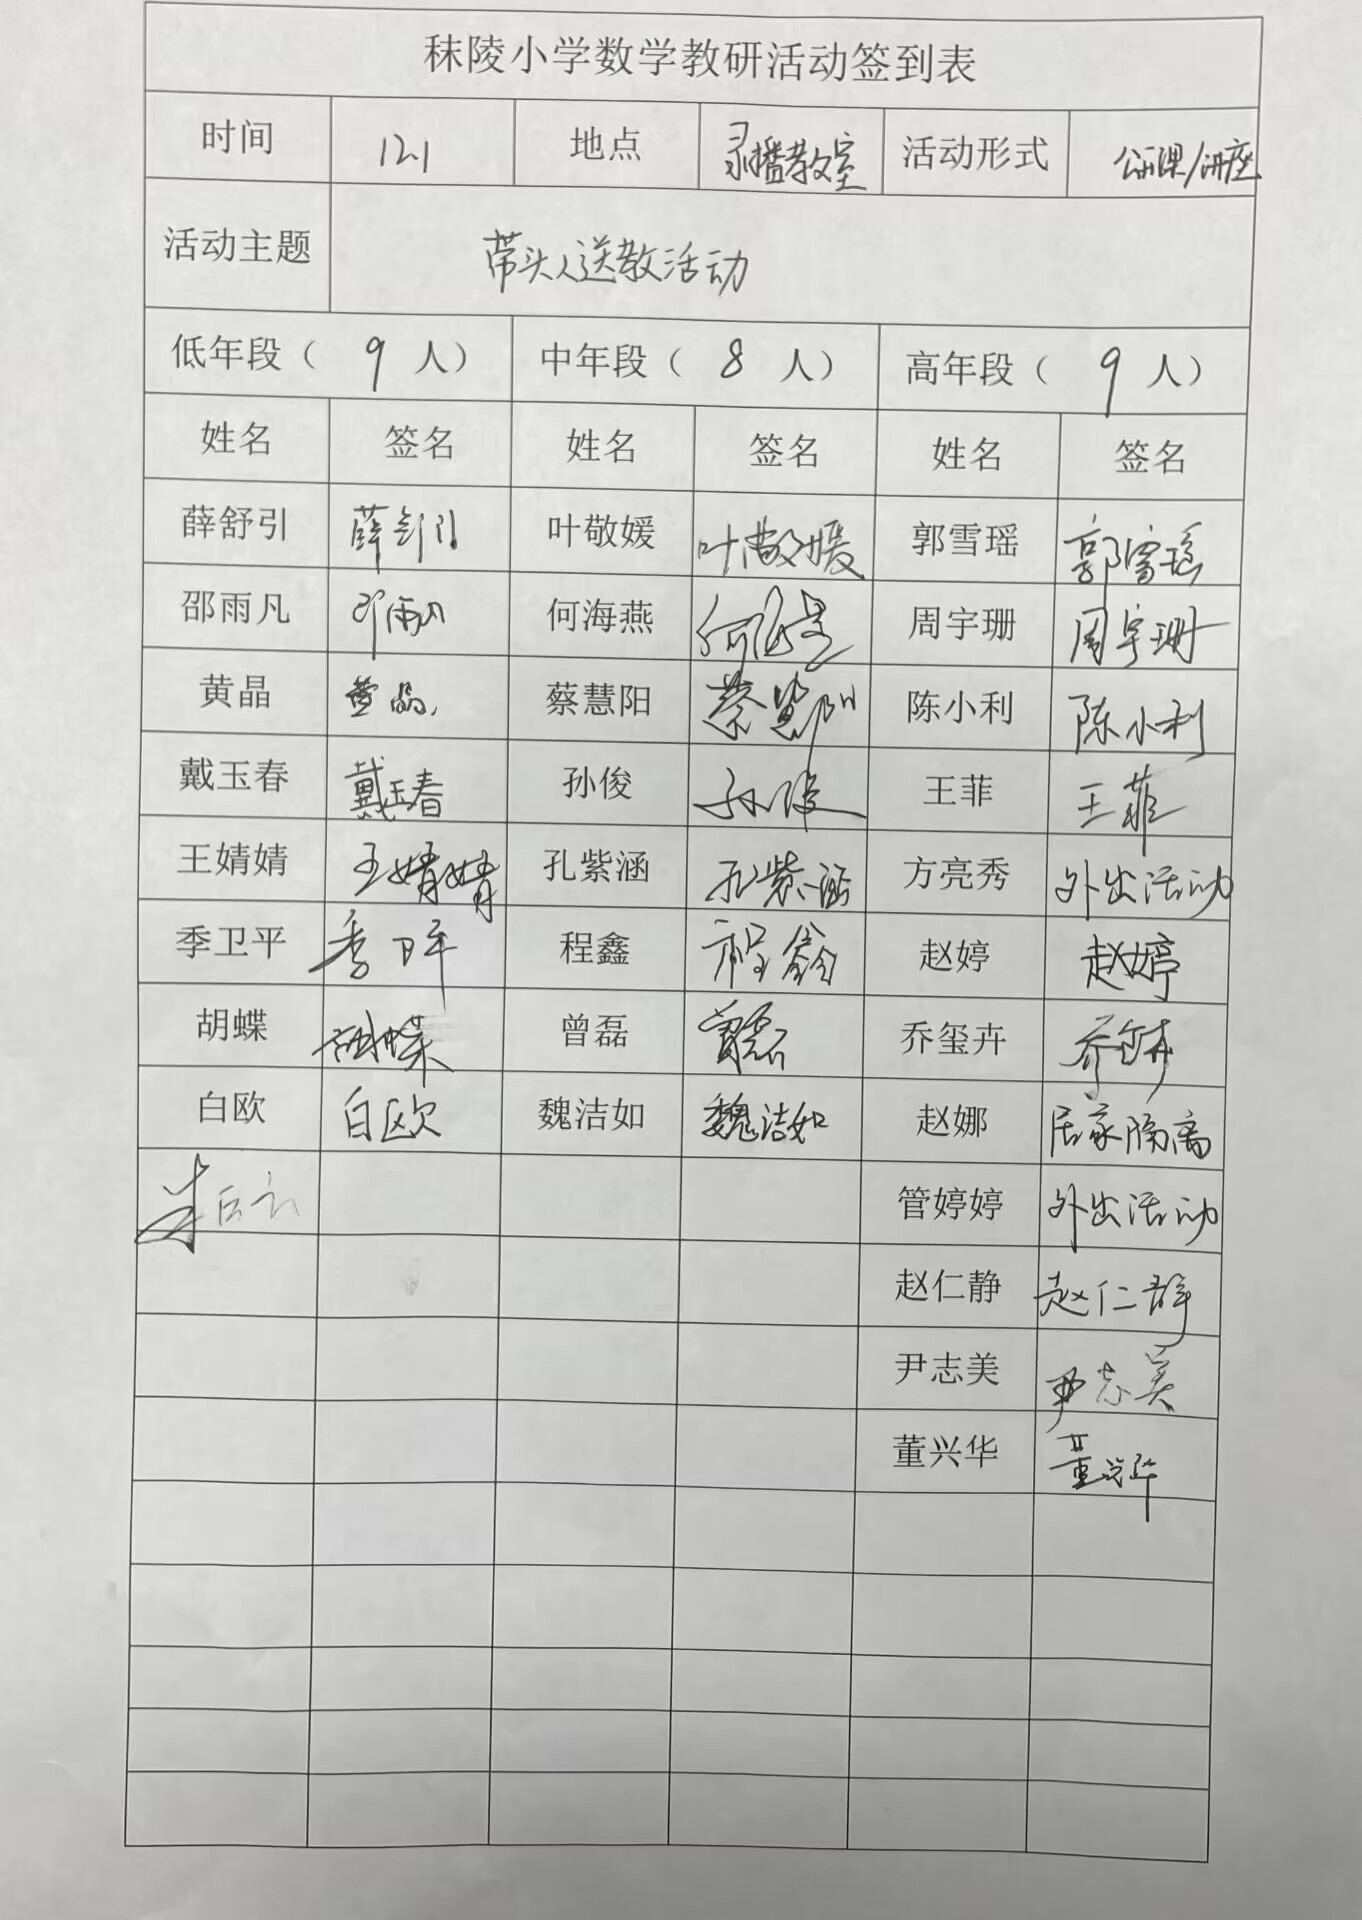 秣陵小学数学教研活动签到表
时间 12.1 地点 录播教室 活动形式 公开课/讲座
活动主题 带头人送教活动
低年段（ 9 人） 中年段（ 8 人） 高年段（ 9 人）
姓名 签名 姓名 签名 姓名 签名
薛舒引 薛舒引 叶敬媛 叶敬媛 郭雪瑶 郭雪瑶
邵雨凡 邵雨凡 何海燕 何海燕 周宇珊 周宇珊
黄晶 黄晶 蔡慧阳 蔡慧阳 陈小利 陈小利
戴玉春 戴玉春 孙俊 孙俊 王菲 王菲
王婧婧 王婧婧 孔紫涵 孔紫涵 方亮秀 外出活动
季卫平 季卫平 程鑫 程鑫 赵婷 赵婷
胡蝶 胡蝶 曾磊 曾磊 乔玺卉 乔玺卉
白欧 白欧 魏洁如 魏洁如 赵娜 居家隔离
管婷婷 外出活动
赵仁静 赵仁静
尹志美 尹志美
董兴华 董兴华